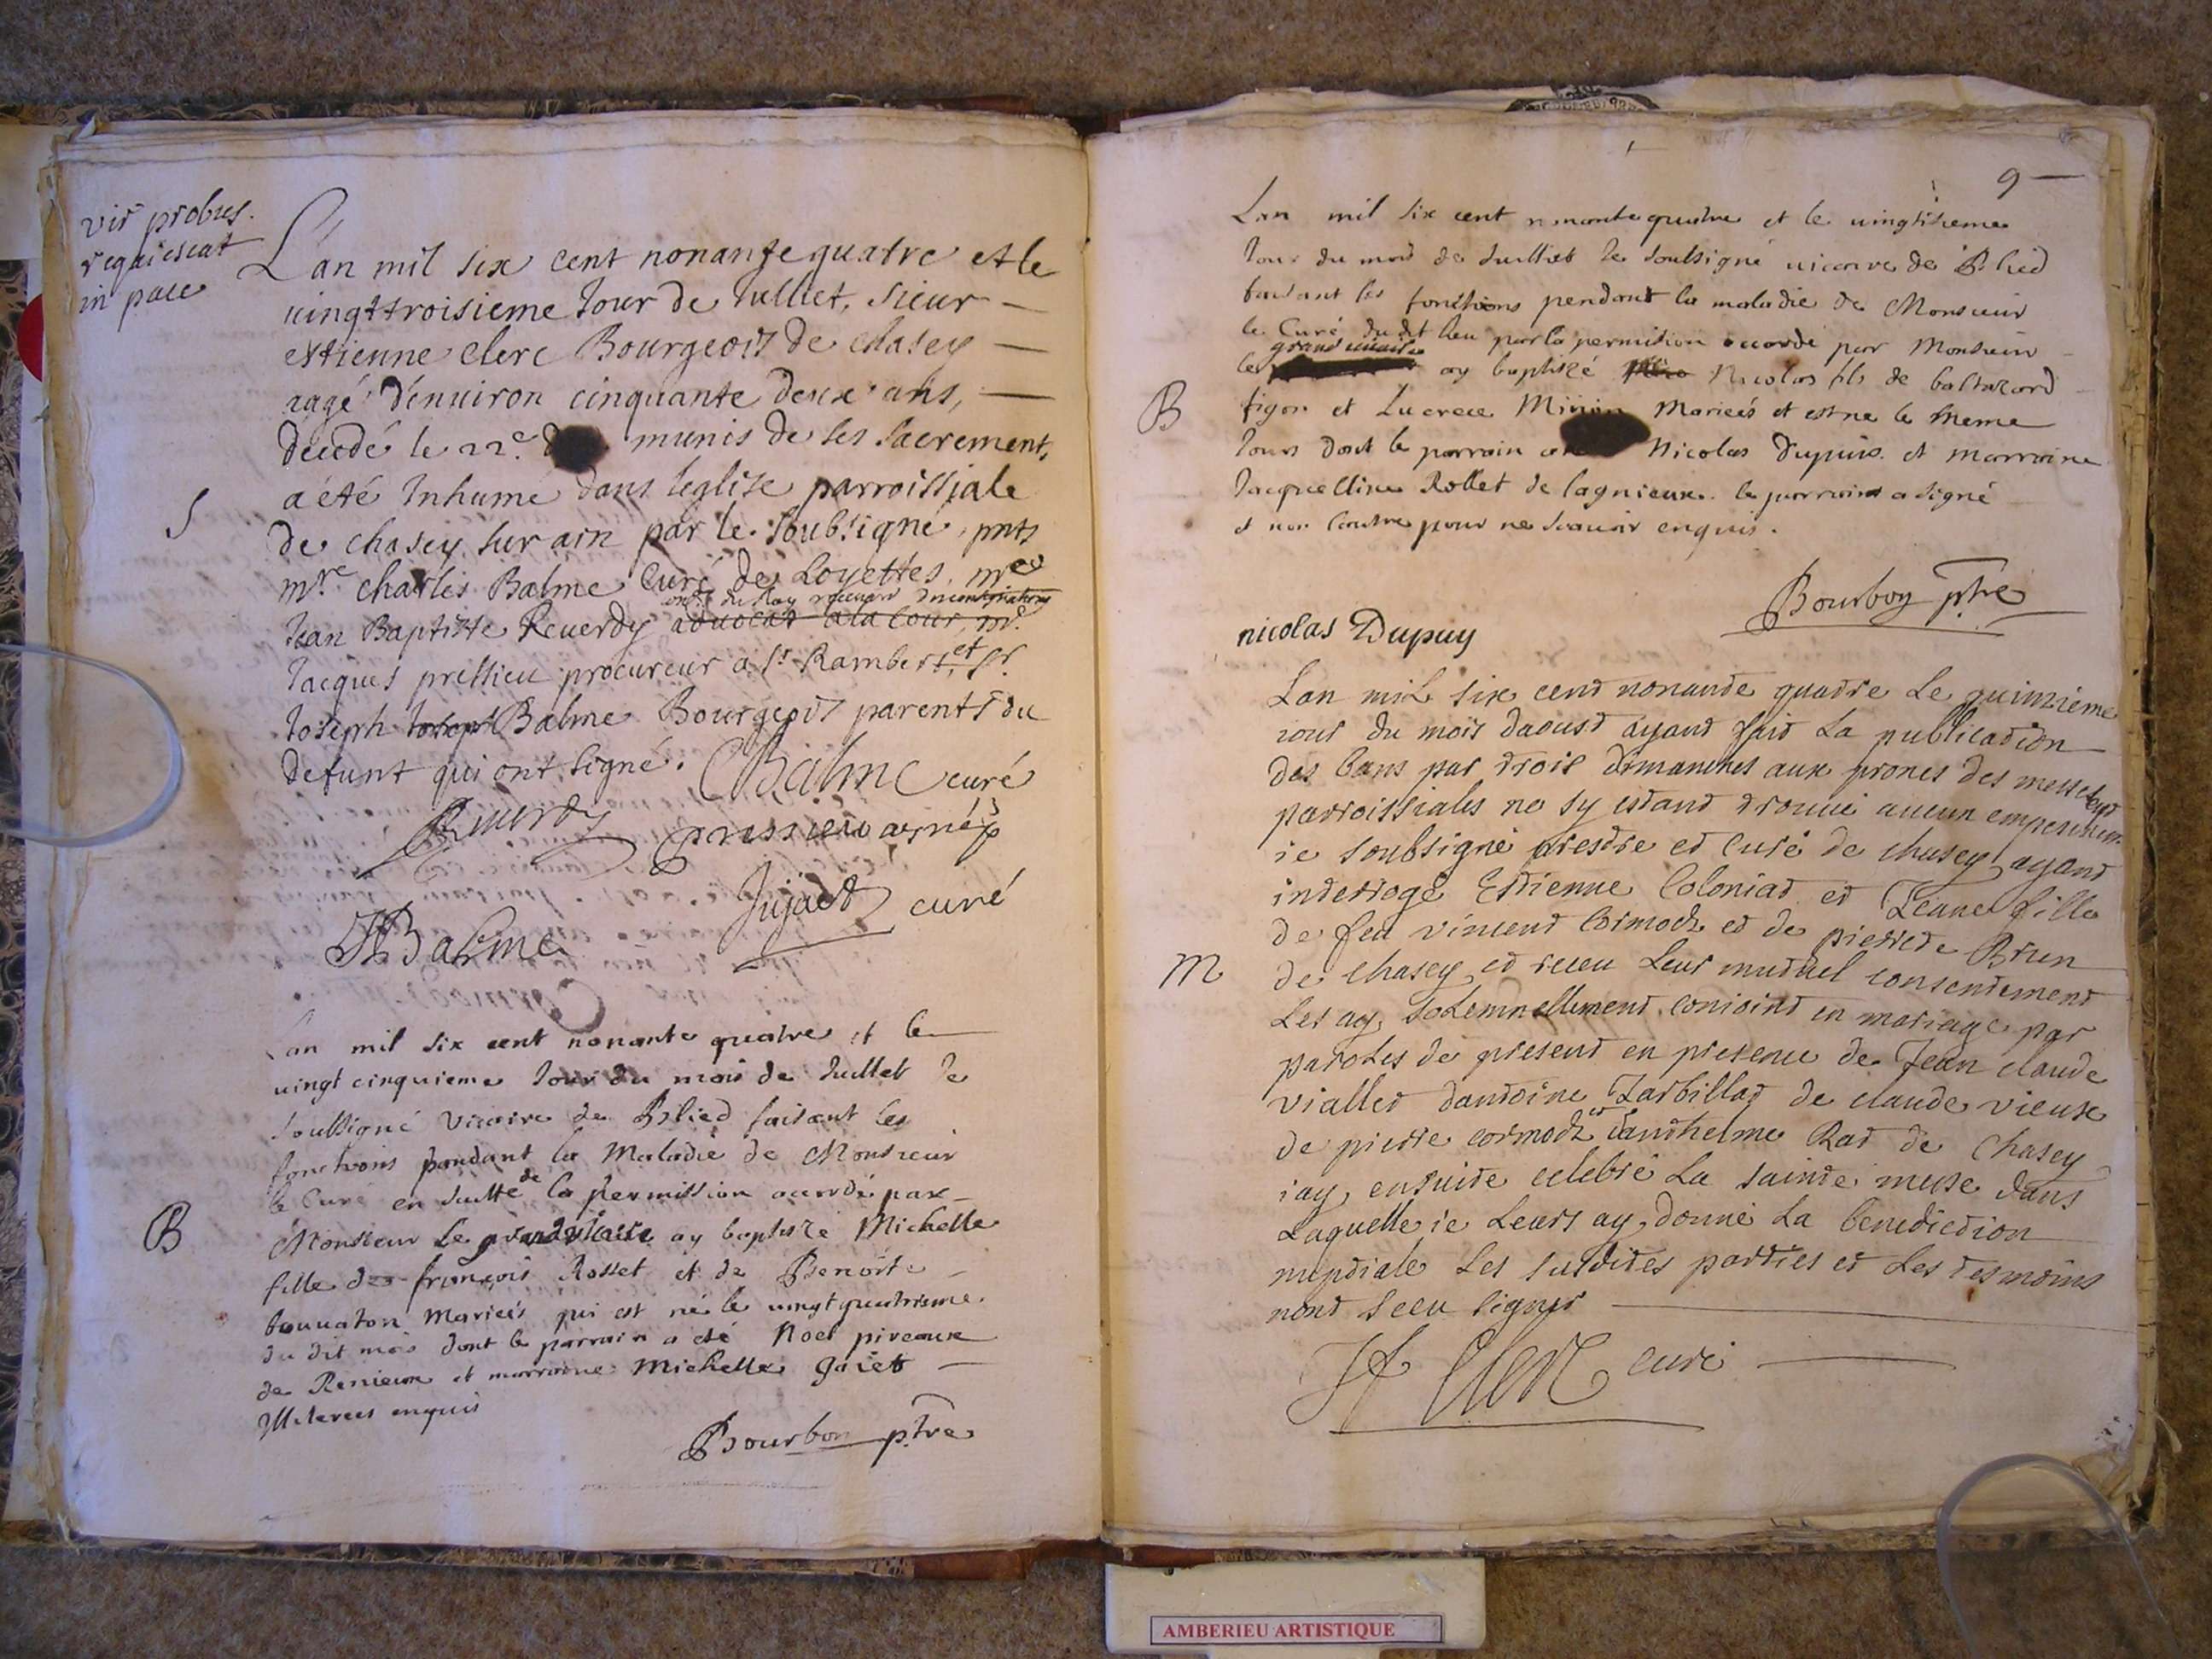 vir probus.
requiescat
in pace
L'an mil six cent nonante quatre et le
uingttroisieme Jour de Julliet, sieur
estienne clerc Bourgeois de chasey
aagé d'enuiron cinquante deux ans,
decedé le 22e. munis de ses sacrement,
S
a été Inhumé dans leglise parroissiale
de chasey sur ain par le soubsigné, pnts
mre charles Balme Curé de Loyettes, mre
conser du Roy receueur des consignations
Jean Baptiste Reuerdy aduocat a la Cour, mr.
Jacques pressieu procureur a st Rambert, et sr.
Joseph Joseph Balme Bourgeois parents du
defunt qui ont signé. CBalme curé
Reuerdy pressieu
Jujat curé
JBalme
Lan mil six cent nonante quatre et le
uingt cinquieme Jour du mois de Jullet Je
soussigné Vicaire de Blied faisant les
fonctions pendant la Maladie de Monsieur
le Curé en suitte de la permission accordé par
B
Monsieur Le grand vicaire ay baptizé Michelle
fille de françois Rosset et de Benoite
bouuaton Mariées qui est né le uingt quatrieme
du dit mois dont le parrain a eté Noel piveaux
de Renieux et marraine Michelle gaiet
Illiterees enquis
Bourbon ptre
9
Lan mil six cent nonante quatre et le uingtsieme
Jour du mois de Julliet Je soubsigné uicaire de Blied
faisant les fonctions pendant la maladie de Monsieur
le Curé du dt lieu par la permission accordé par Monsieur
grand uicaire
le ay baptizé Nicolas fils de baltazard
B
figon et Lucrece Mariées et est né le meme
Jours dont le parrain Nicolas Dupuis et marraine
Jacquelline Rollet de lagnieux. le parrain a signé
et non lautre pour ne scauoir enquis.
Bourbon ptre
nicolas Dupuy
Lan mil six cent nonante quatre Le quinzieme
iour du mois daoust ayant fait La publication
des bans par trois dimanches aux prones des messes
parroissiales ne sy estant trouué aucun empeschem.
ie soubsigné prestre et curé de chasey ayant
interrogé Estienne Coloniat et Jeane fille
de feu vincent Cormoz et de pierrete Brun
M
de chasey et receu Leur mutuel consentement
Les ay solemnellement conioint en mariage par
paroles de present en presence de Jean claude
viallet dantoine Jarbillat de claude vieux
de pierre cormoz et danthelme Rat de Chasey
iay ensuite celebré La sainte messe dans
Laquelle ie Leurs ay donné La benediction
nuptiale Les susdites parties et Les tesmoins
nont sceu signer
Clerc curé
AMBERIEU ARTISTIQUE